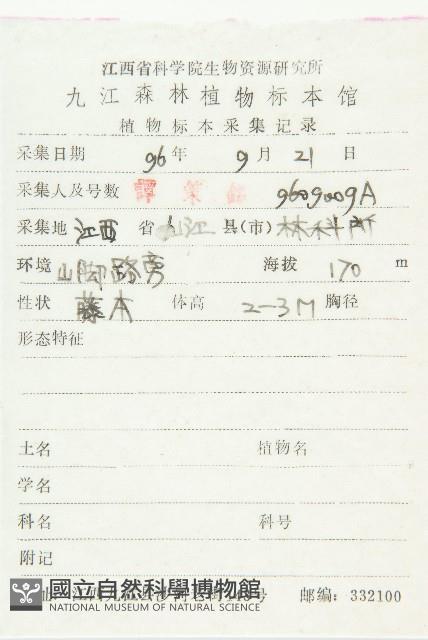 江西省科学院生物资源研究所
九江森林植物标本馆
植物标本采集记录
采集日期 96 年 9 月 21 日
采集人及号数 譚策銘 9609009A
采集地 江西 省 江 县(市) 林科所
环境 山脚路旁 海拔 170 m
性状 藤本 体高 2-3M 胸径
形态特征
土名 植物名
学名
科名 科号
附记
國立自然科學博物館 号 邮编：332100
NATIONAL MUSEUM OF NATURAL SCIENCE